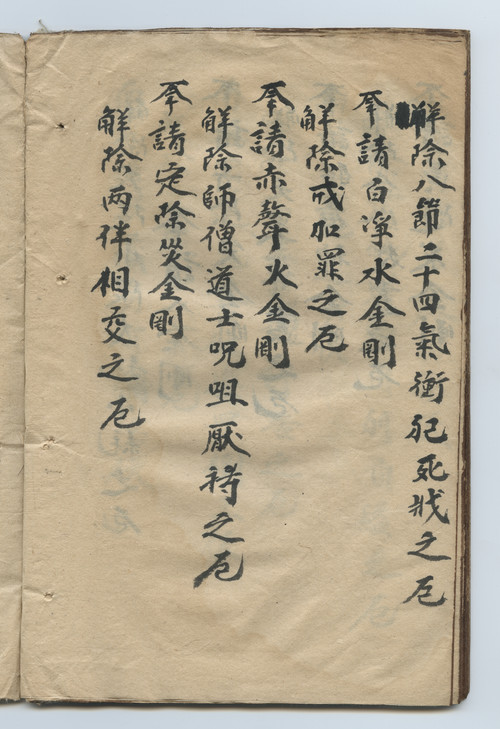 解除八節二十四氣衝犯死戕之厄
奉請白淨水金剛
解除戒加罪之厄
奉請赤聲火金剛
解除師僧道士呪咀厭祷之厄
奉請定除災金剛
解除两伴相交之厄